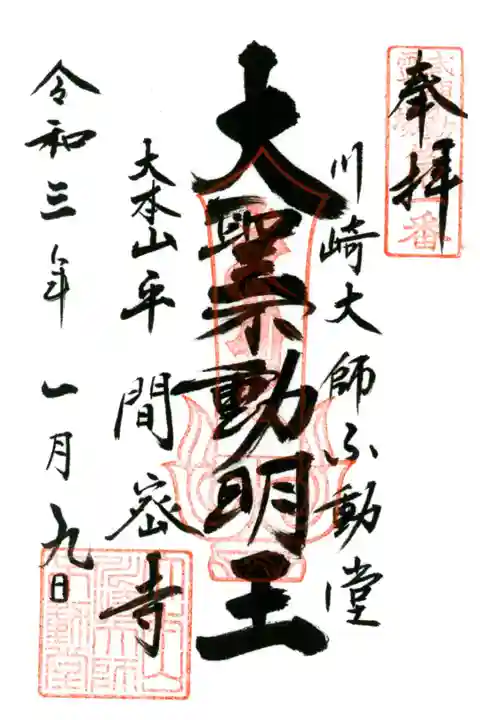 奉拝
川崎大師不動堂
大聖不動明王
大本山平間密寺
令和三年一月九日